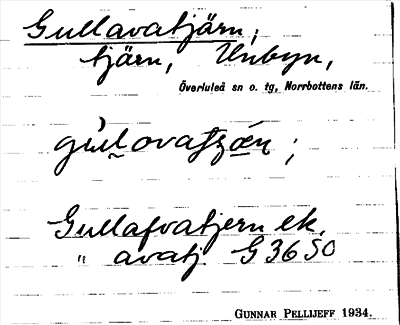 Gullavatjärn,
tjärn, Unbyn,
Överluleå sn o. tg, Norrbottens län.
Gullafvatjern ek.
" avatj. G 3650
GUNNAR PELLIJEFF 1934.